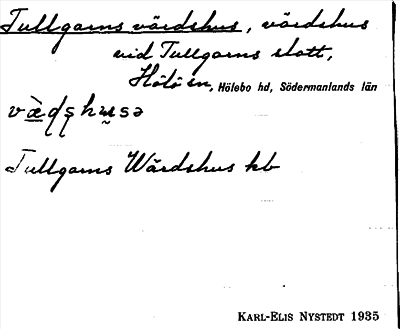 Tullgarns värdshus, värdshus
vid Tullgarns slott,
Hölö sn, Hölebo hd, Södermanlands län
Tullgarns Wärdshus kb
KARL-ELIS NYSTEDT 1935